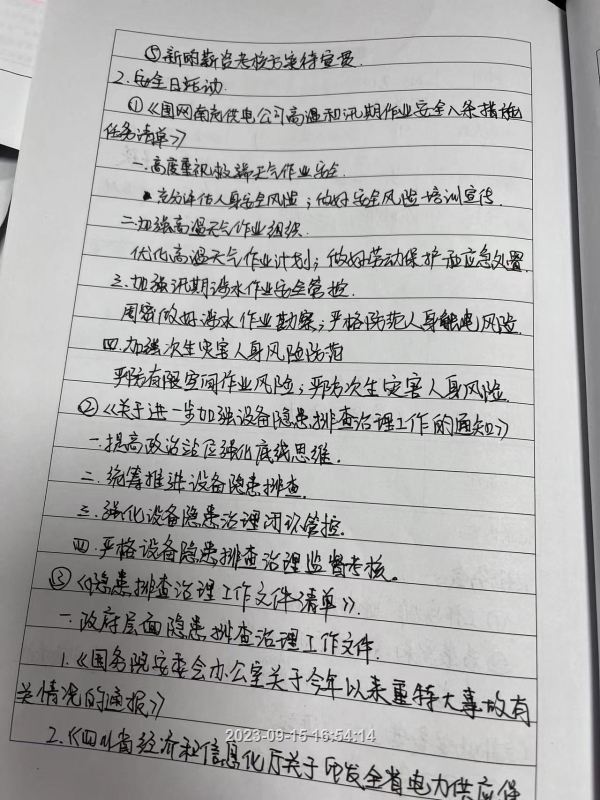 ⑤新的薪资考核方案待宣贯.
2.安全日活动.
①《国网南充供电公司高温和汛期作业安全八条措施
任务清单》
一.高度重视极端天气作业安全.
充分评估人身安全风险；做好安全风险培训宣传.
二.加强高温天气作业组织.
优化高温天气作业计划；做好劳动保护和应急处置.
三.加强汛期涉水作业安全管控.
周密做好涉水作业勘察；严格防范人身触电风险.
四.加强次生灾害人身风险防范
严防有限空间作业风险；严防次生灾害人身风险.
②《关于进一步加强设备隐患排查治理工作的通知》
一.提高政治站位强化底线思维.
二.统筹推进设备隐患排查.
三.强化设备隐患治理闭环管控.
四.严格设备隐患排查治理监督考核。
③《隐患排查治理工作文件清单》.
一.政府层面隐患排查治理工作文件.
1.《国务院安委会办公室关于今年以来重特大事故有
关情况的通报》
2023-09-15-16:54:14
2.《四川省经济和信息化厅关于印发全省电力供应保